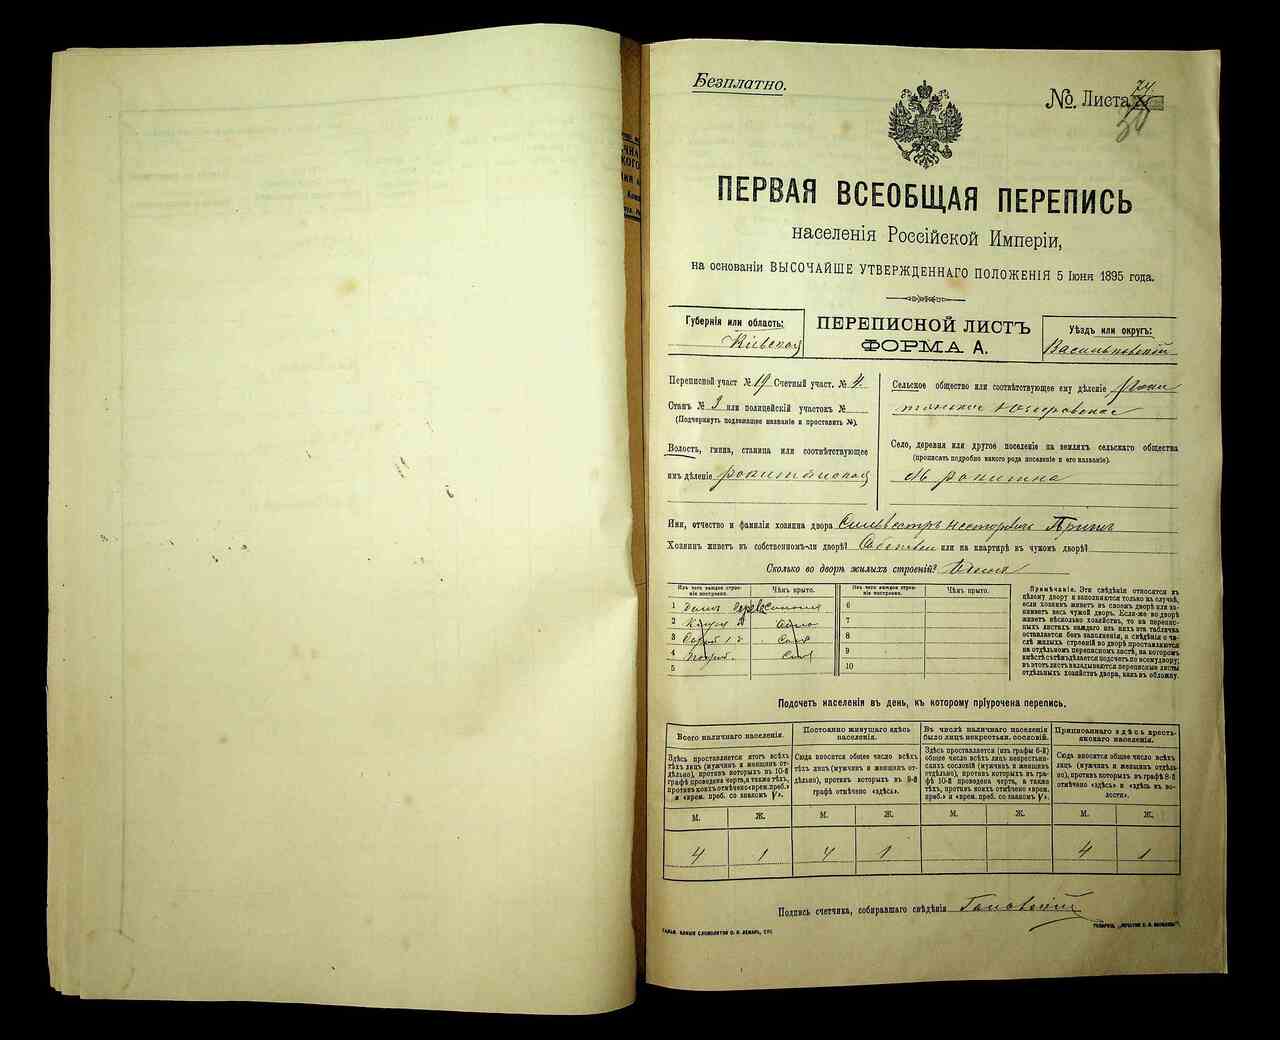 Безплатно.
№. Листа 74
ПЕРВАЯ ВСЕОБЩАЯ ПЕРЕПИСЬ
населенія Россійской Имперіи,
на основаніи ВЫСОЧАЙШЕ УТВЕРЖДЕННАГО ПОЛОЖЕНІЯ 5 Іюня 1895 года.
Губернія или область:
Кіевская
ПЕРЕПИСНОЙ ЛИСТЪ
ФОРМА А.
Уѣздъ или округъ:
Васильковскій
Переписной участ № 19 Счетный участ. № 4.
Станъ № 3 или полицейскій участокъ №
(Подчеркнуть подлежащее названіе и проставить №).
Волость, гмина, станица или соотвѣтствующее
имъ дѣленіе
Сельское общество или соотвѣтствующее ему дѣленіе
Село, деревня или другое поселеніе на земляхъ сельскаго общества
(прописать подробно какого рода поселеніе и его названіе).
М Ракитна
Имя, отчество и фамилія хозяина двора Сильвестръ Несторовъ
Хозяинъ живетъ въ собственномъ-ли дворѣ? или на квартирѣ въ чужомъ дворѣ?
Сколько во дворѣ жилыхъ строеній?
Изъ чего каждое строе-
ніе построено.
Чѣмъ крыто.
Изъ чего каждое строе-
ніе построено.
Чѣмъ крыто.
1
2
3
4
5
6
7
8
9
10
Примѣчаніе. Эти свѣдѣнія относятся къ
цѣлому двору и заполняются только на случай,
если хозяинъ живетъ въ своемъ дворѣ или за-
нимаетъ весь чужой дворъ. Если-же во дворѣ
живетъ нѣсколько хозяйствъ, то на перепис-
ныхъ листахъ каждаго изъ нихъ эта табличка
оставается безъ заполненія, а свѣдѣнія о чи-
слѣ жилыхъ строеній во дворѣ проставляются
на отдѣльномъ переписномъ листѣ, на которомъ
вмѣстѣ съ тѣмъ дѣлается подсчетъ по всему двору;
въ этотъ листъ вкладываются переписные листы
отдѣльныхъ хозяйствъ двора, какъ въ обложку.
Подсчетъ населенія въ день, къ которому пріурочена перепись.
Всего наличнаго населенія.
Здѣсь проставляется итогъ всѣхъ
тѣхъ лицъ (мужчинъ и женщинъ от-
дѣльно), противъ которыхъ въ 10-й
графѣ проведена черта, а также тѣхъ,
противъ коихъ отмѣчено «врем. преб.»
и «врем. преб. со знакомъ V».
Постоянно живущаго здѣсь
населенія.
Сюда вносится общее число всѣхъ
тѣхъ лицъ (мужчинъ и женщинъ от-
дѣльно), противъ которыхъ въ 9-й
графѣ отмѣчено «здѣсь».
Въ числѣ наличнаго населенія
было лицъ некрестьян. сословій.
Здѣсь проставляется (изъ графы 6-й)
общее число всѣхъ лицъ некрестьян-
скихъ сословій (мужчинъ и женщинъ
отдѣльно), противъ которыхъ въ гра-
фѣ 10-й проведена черта, а также
тѣхъ, противъ коихъ отмѣчено «врем.
преб.» и «врем. преб. со знакомъ V».
Приписаннаго здѣсь кресть-
янскаго населенія.
Сюда вносится общее число всѣхъ
лицъ (мужчинъ и женщинъ отдѣль-
но), противъ которыхъ въ графѣ 8-й
отмѣчено «здѣсь» и «здѣсь въ во-
лости».
М. Ж. М. Ж. М. Ж. М. Ж.
4 1 4 1 4 1
Подпись счетчика, собиравшаго свѣдѣнія